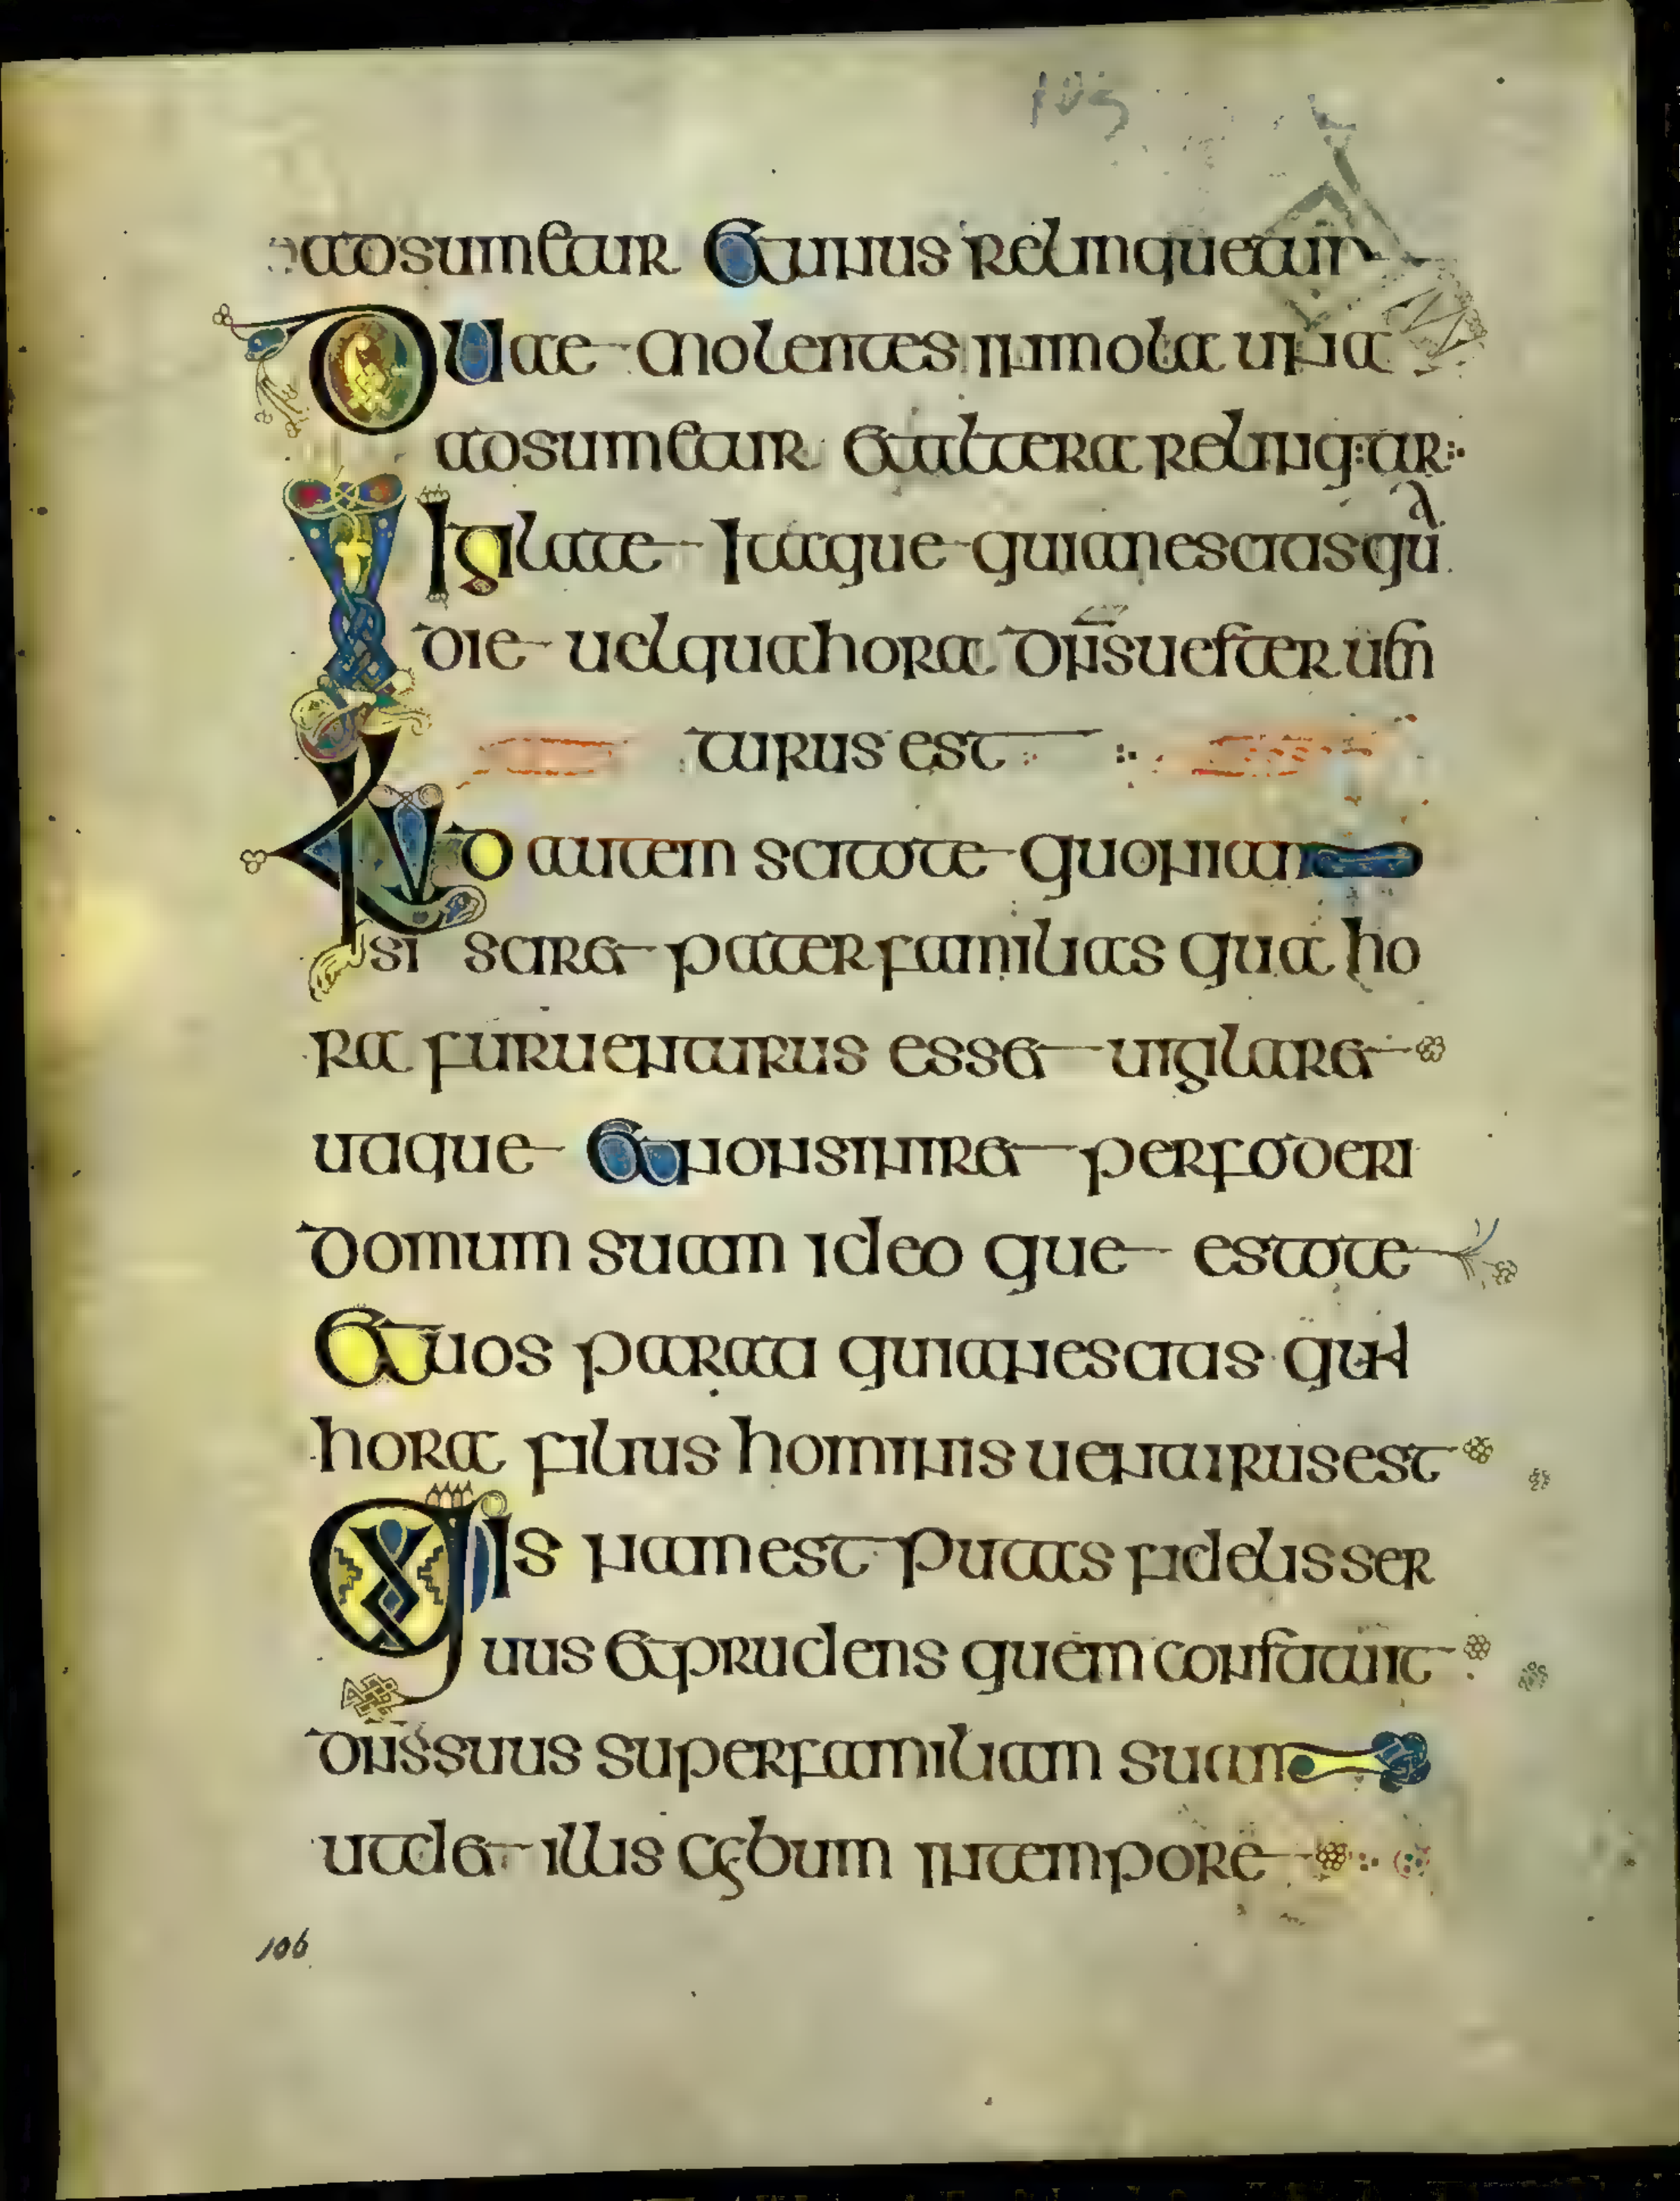 adsumetur et unus relinquetur
Duae molentes in mola una
adsumetur et altera relinq:tur:
Vigilate itaque quia nescitis qua
die uel qua hora dns uester uen
turus est
Illud autem scitote quoniam
si sciret pater familias qua ho
ra fur uenturus esset uigilaret
utique et non sineret perfoderi
domum suam ideoque estote
et uos parati quia nescitis qua
hora filius hominis uenturus est
Quis nam est putas fidelis ser
uus et prudens quem constituit
dns suus super familiam suam
ut det illis cybum in tempore
106